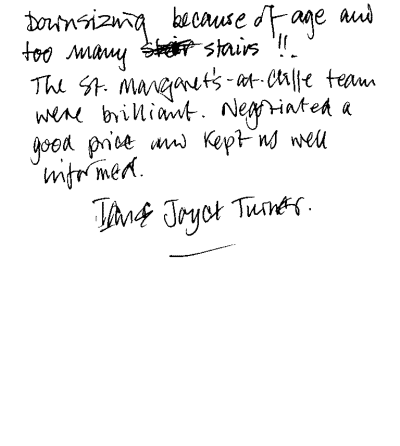 Downsizing because of age and
too many stairs !!.
The St. Margaret's-at-Cliffe team
were brilliant. Negotiated a
good price and kept us well
informed.
Turner.